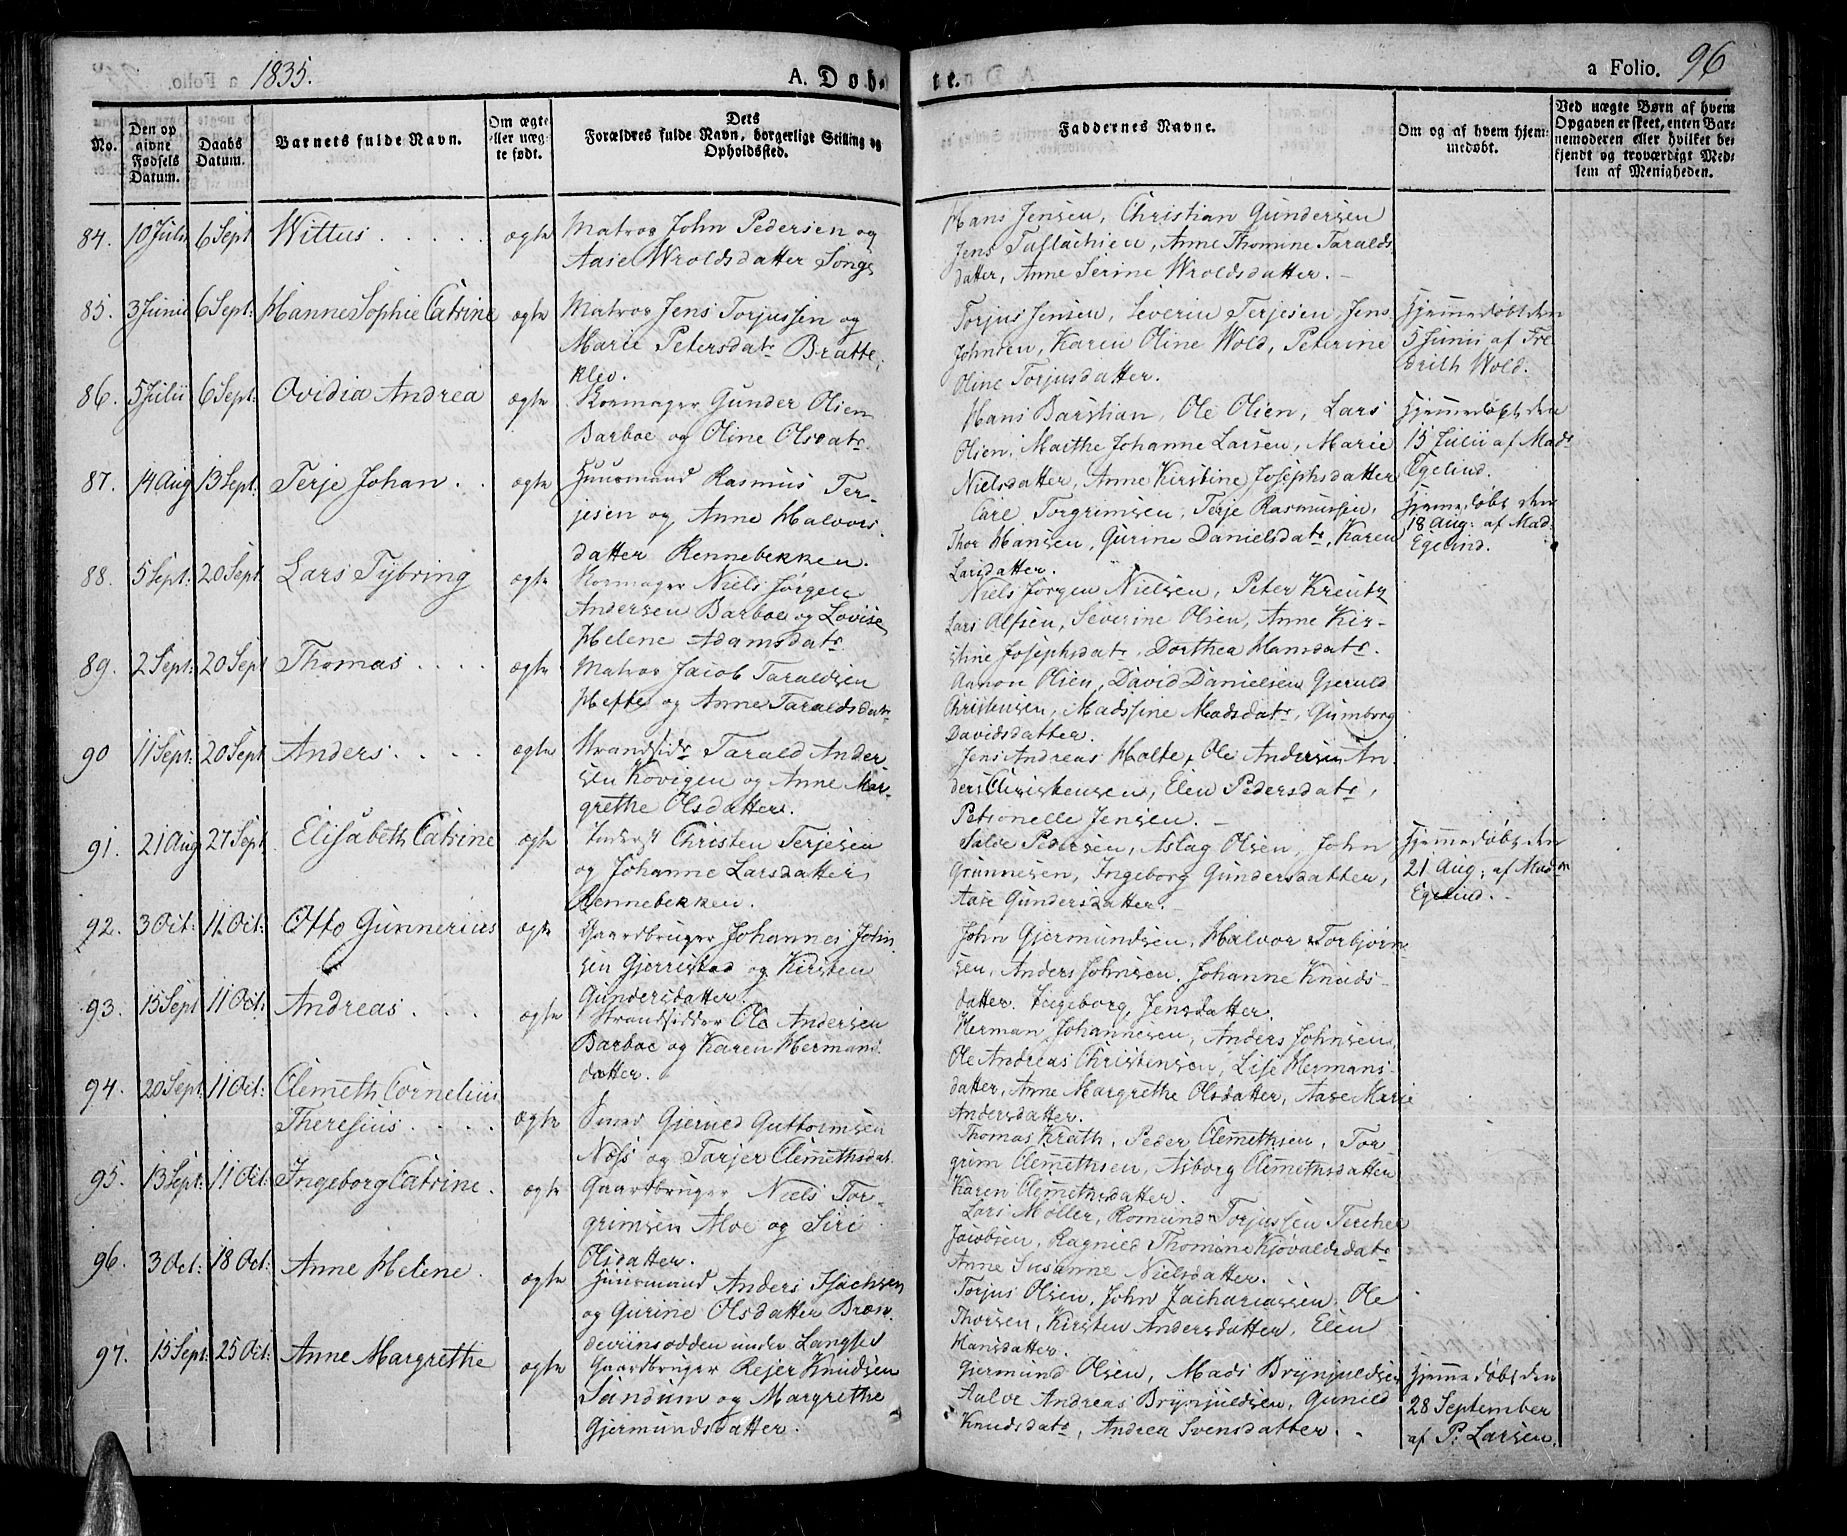 a Folio. 1835. A. Døb- te. a Folio. 96
No.
Den op givne Fødsels Datum.
Daabs Datum.
Barnets fulde Navn.
Om ægte eller uægte født.
Dets Forældres fulde Navn, borgerligt Stilling og Opholdssted.
Faddernes Navne.
Om og af hvem hjemmedøbt.
Ved uægte Børn af hvem Opgaven er skeet, enten Barnemoderen eller hvilket bekjendt og troværdigt Medlem af Menigheden.
84. 10 Julii 6 Sept Wittus ægte
Matros John Pedersen og
Aase Wroldsdatter Songe
Hans Jensen, Christian Gundersen
Jens Tallachsen, Anne Thomine Taralds
datter, Anne Serine Wroldsdatter.
85. 3 Junii 6 Sept: Hanne Sophie Catrine ægte
Matros Jens Torjussen og
Marie Petersdatr Bratte-
klev.
Torjus Jensen, Severin Terjesen, Jens
Johnsen, Karen Oline Wold, Peterine
Oline Torjusdatter.
Hjemmedøbt den
5 Junii af Fre
drith Wold.
86. 5 Julii 6 Sept: Ovidia Andrea ægte
Skomager Gunder Olsen
Barboe og Oline Olsdatr.
Hans Barstian, Ole Olsen, Lars
Olsen, Maithe Johanne Larsen, Marie
Nielsdatter, Anne Kirstine Josephsdatter
Hjemmedøbt den
15 Julii af Mad:
Egelind.
87. 14 Aug 13 Sept: Terje Johan ægte
Huusmand Rasmus Ter-
jesen og Anne Halvors
datter Rennebekken.
Carl Torgrimsen, Terje Rasmussen,
Thor Hansen, Gurine Danielsdatr, Karen
Larsdatter.
Hjemmedøbt den
18 Aug: af Mad:
Egelind.
88. 5 Sept: 20 Sept Lars Tybring ægte
Skomager Niels Jørgen
Andersen Barboe og Lovise
Helene Adamsdatr
Niels Jørgen Nielsen, Peter Kreutz
Lars Alfsen, Severine Olsen, Anne Kir-
stine Josephsdatr, Dorthea Hansdatr.
89. 2 Sept: 20 Sept Thomas ægte
Matros Jacob Taraldsen
Hefte og Anne Taraldsdatr
Aanon Olsen, David Danielsen Gjeruld
Christensen, Madssine Madsdatr, Gumborg
Davidsdatter.
90 11 Sept: 20 Sept Anders ægte
Strandsidr Tarald Ander-
sen Kovigen og Anne Mar-
grethe Olsdatter.
Jens Andreas Holte, Ole Andersen An
ders Christensen, Elen Pedersdatr,
Petronelle Jensen.
91. 21 Aug 27 Sept Elisabeth Catrine ægte
Inderst Christen Terjesen
og Johanne Larsdatter
Rennebekken.
Salve Pedersen, Aslag Olsen, John
Grunnesen, Ingeborg Gundersdatter,
Aase Gundersdatter.
Hjemmedøbt den
21 Aug: af Madm
Egelind.
92. 3 Oct: 11 Oct: Otto Gunnerius ægte
Gaardbruger Johannes John
sen Gjerrestad og Kirsten
Gundersdatter.
John Gjermundsen, Halvor Torbjørn
sen, Anders Johnsen, Johanne Knuds-
datter. Ingeborg Jensdatter.
93. 15 Sept 11 Oct: Andreas ægte
Strandsidder Ole Andersen
Barboe og Karen Hermans
datter.
Herman Johannesen, Anders Johnsen,
Ole Andreas Christensen, Lise Hermans-
datter, Anne Margrethe Olsdatter, Aase Marie
Andersdatter.
94. 20 Sept: 11 Oct: Clemeth Cornelius
Theresius ægte
Smed Gjerued Guttormsen
Næss og Tarjer Clemethsdat
Thomas Krath, Peder Clemethsen, Tor-
grim Clemethsen, Asborg Clemethsdatter
Karen Clemethsdatter.
95. 13 Sept: 11 Oct: Ingeborg Catrine ægte
Gaardbruger Niels Tor-
grimsen Aloe og Siri
Olsdatter.
Lars Møller, Romund Torjussen Tercher
Jacobsen, Ragnild Thomine Kjøvaldsdatr
Anne Susanne Nielsdatter.
96. 3 Oct: 18 Oct: Anne Helene ægte
Huusmand Anders Isachsen
og Gurine Olsdatter Bræn
deviinsodden under Langsted
Torjus Olsen, John Zachariassen, Ole
Thorsen, Kirsten Andersdatter, Elen
Hansdatter.
97. 15 Sept: 25 Oct: Anne Margrethe ægte
Gaardbruger Rejer Knudsen
Sundum og Margrethe
Gjermundsdatter.
Gjermund Olsen, Mads Brynjuldsen
Aalve Andreas Brynjuldsen, Gunild
Knudsdatr, Andrea Svensdatter.
Hjemmedøbt den
28 September
af P: Larsen.